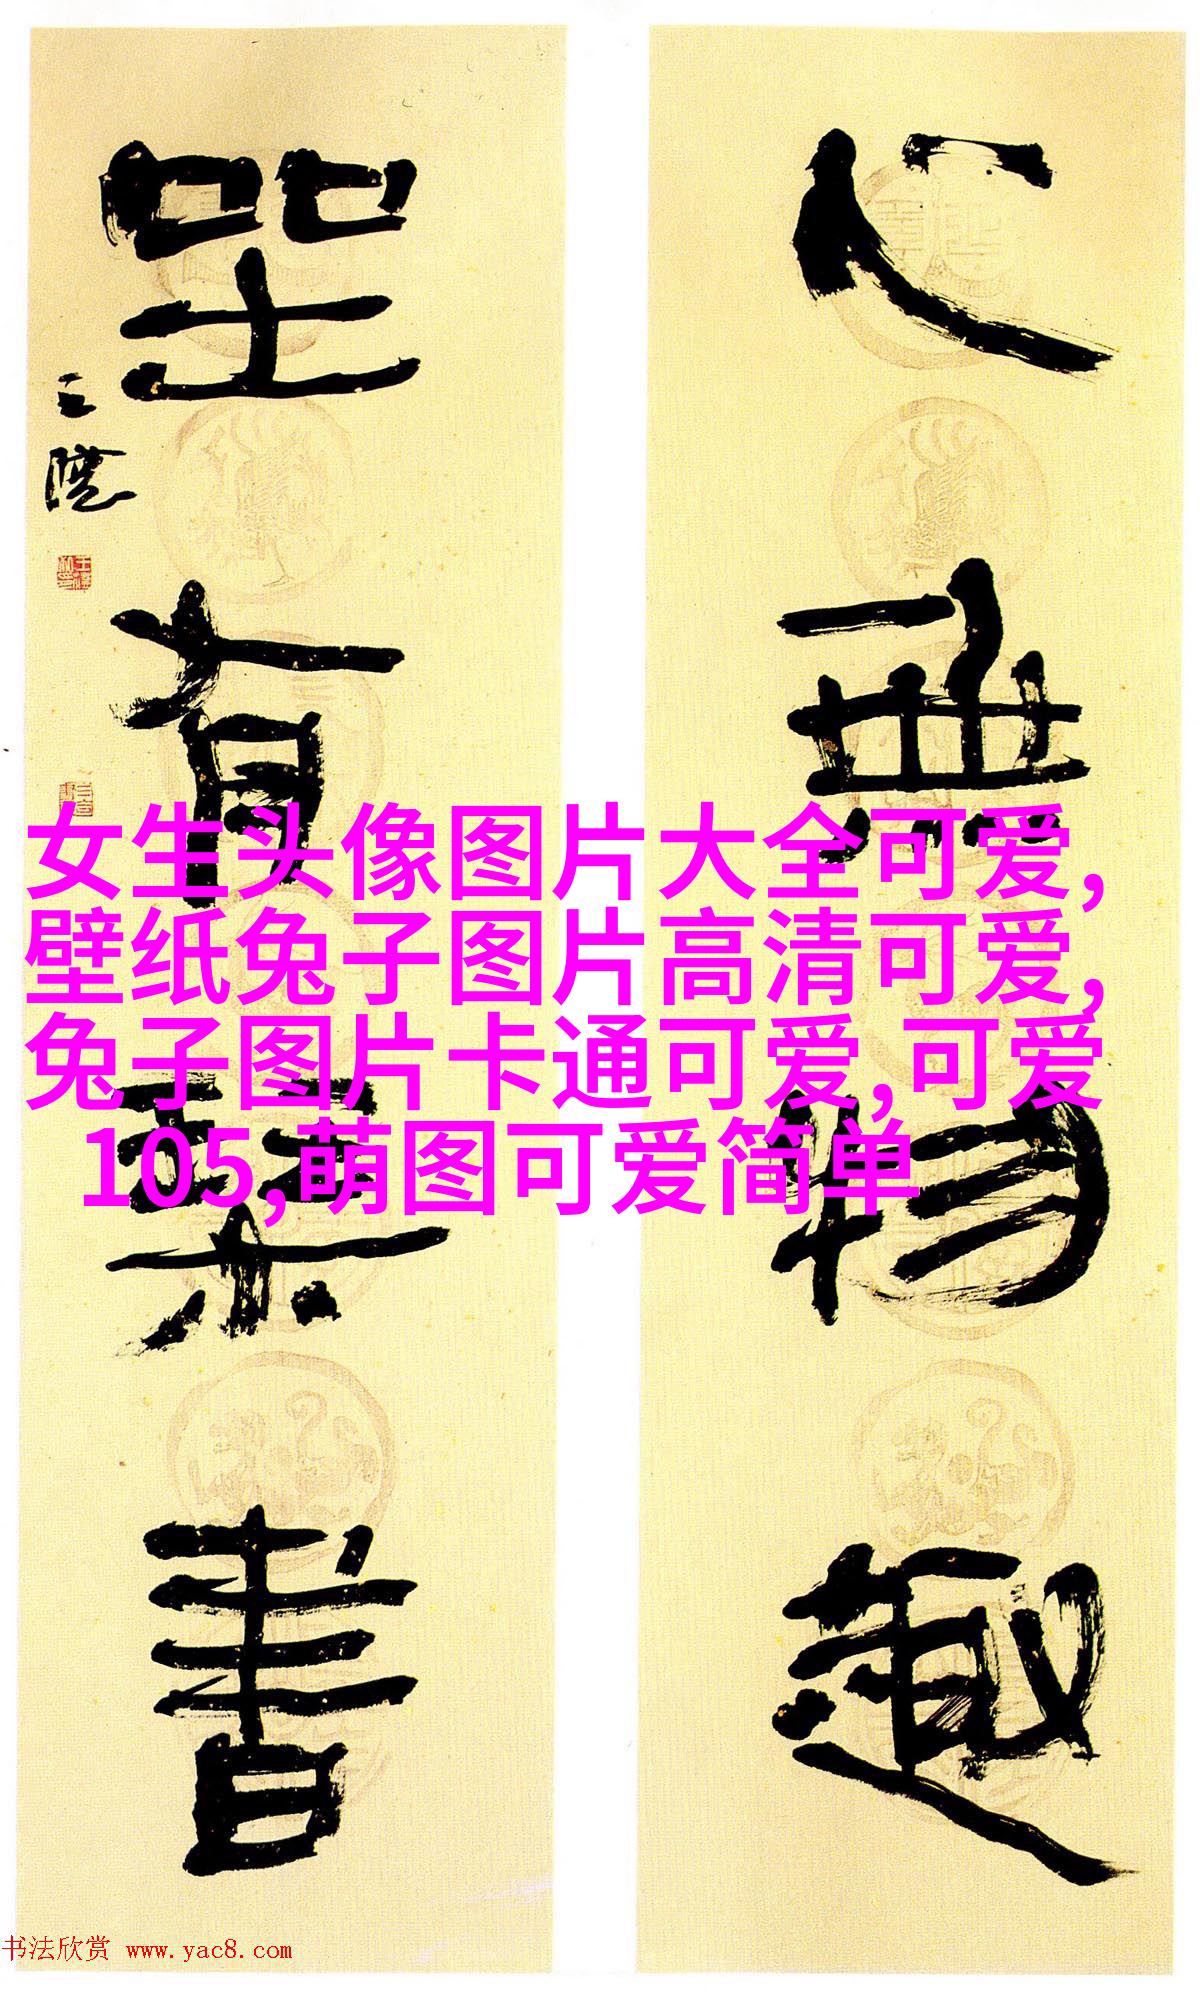 心無物趣
坐有琴書
女生头像图片大全可爱,
壁纸兔子图片高清可爱,
兔子图片卡通可爱,可爱
105,萌图可爱简单
书法欣赏 www.yac8.com